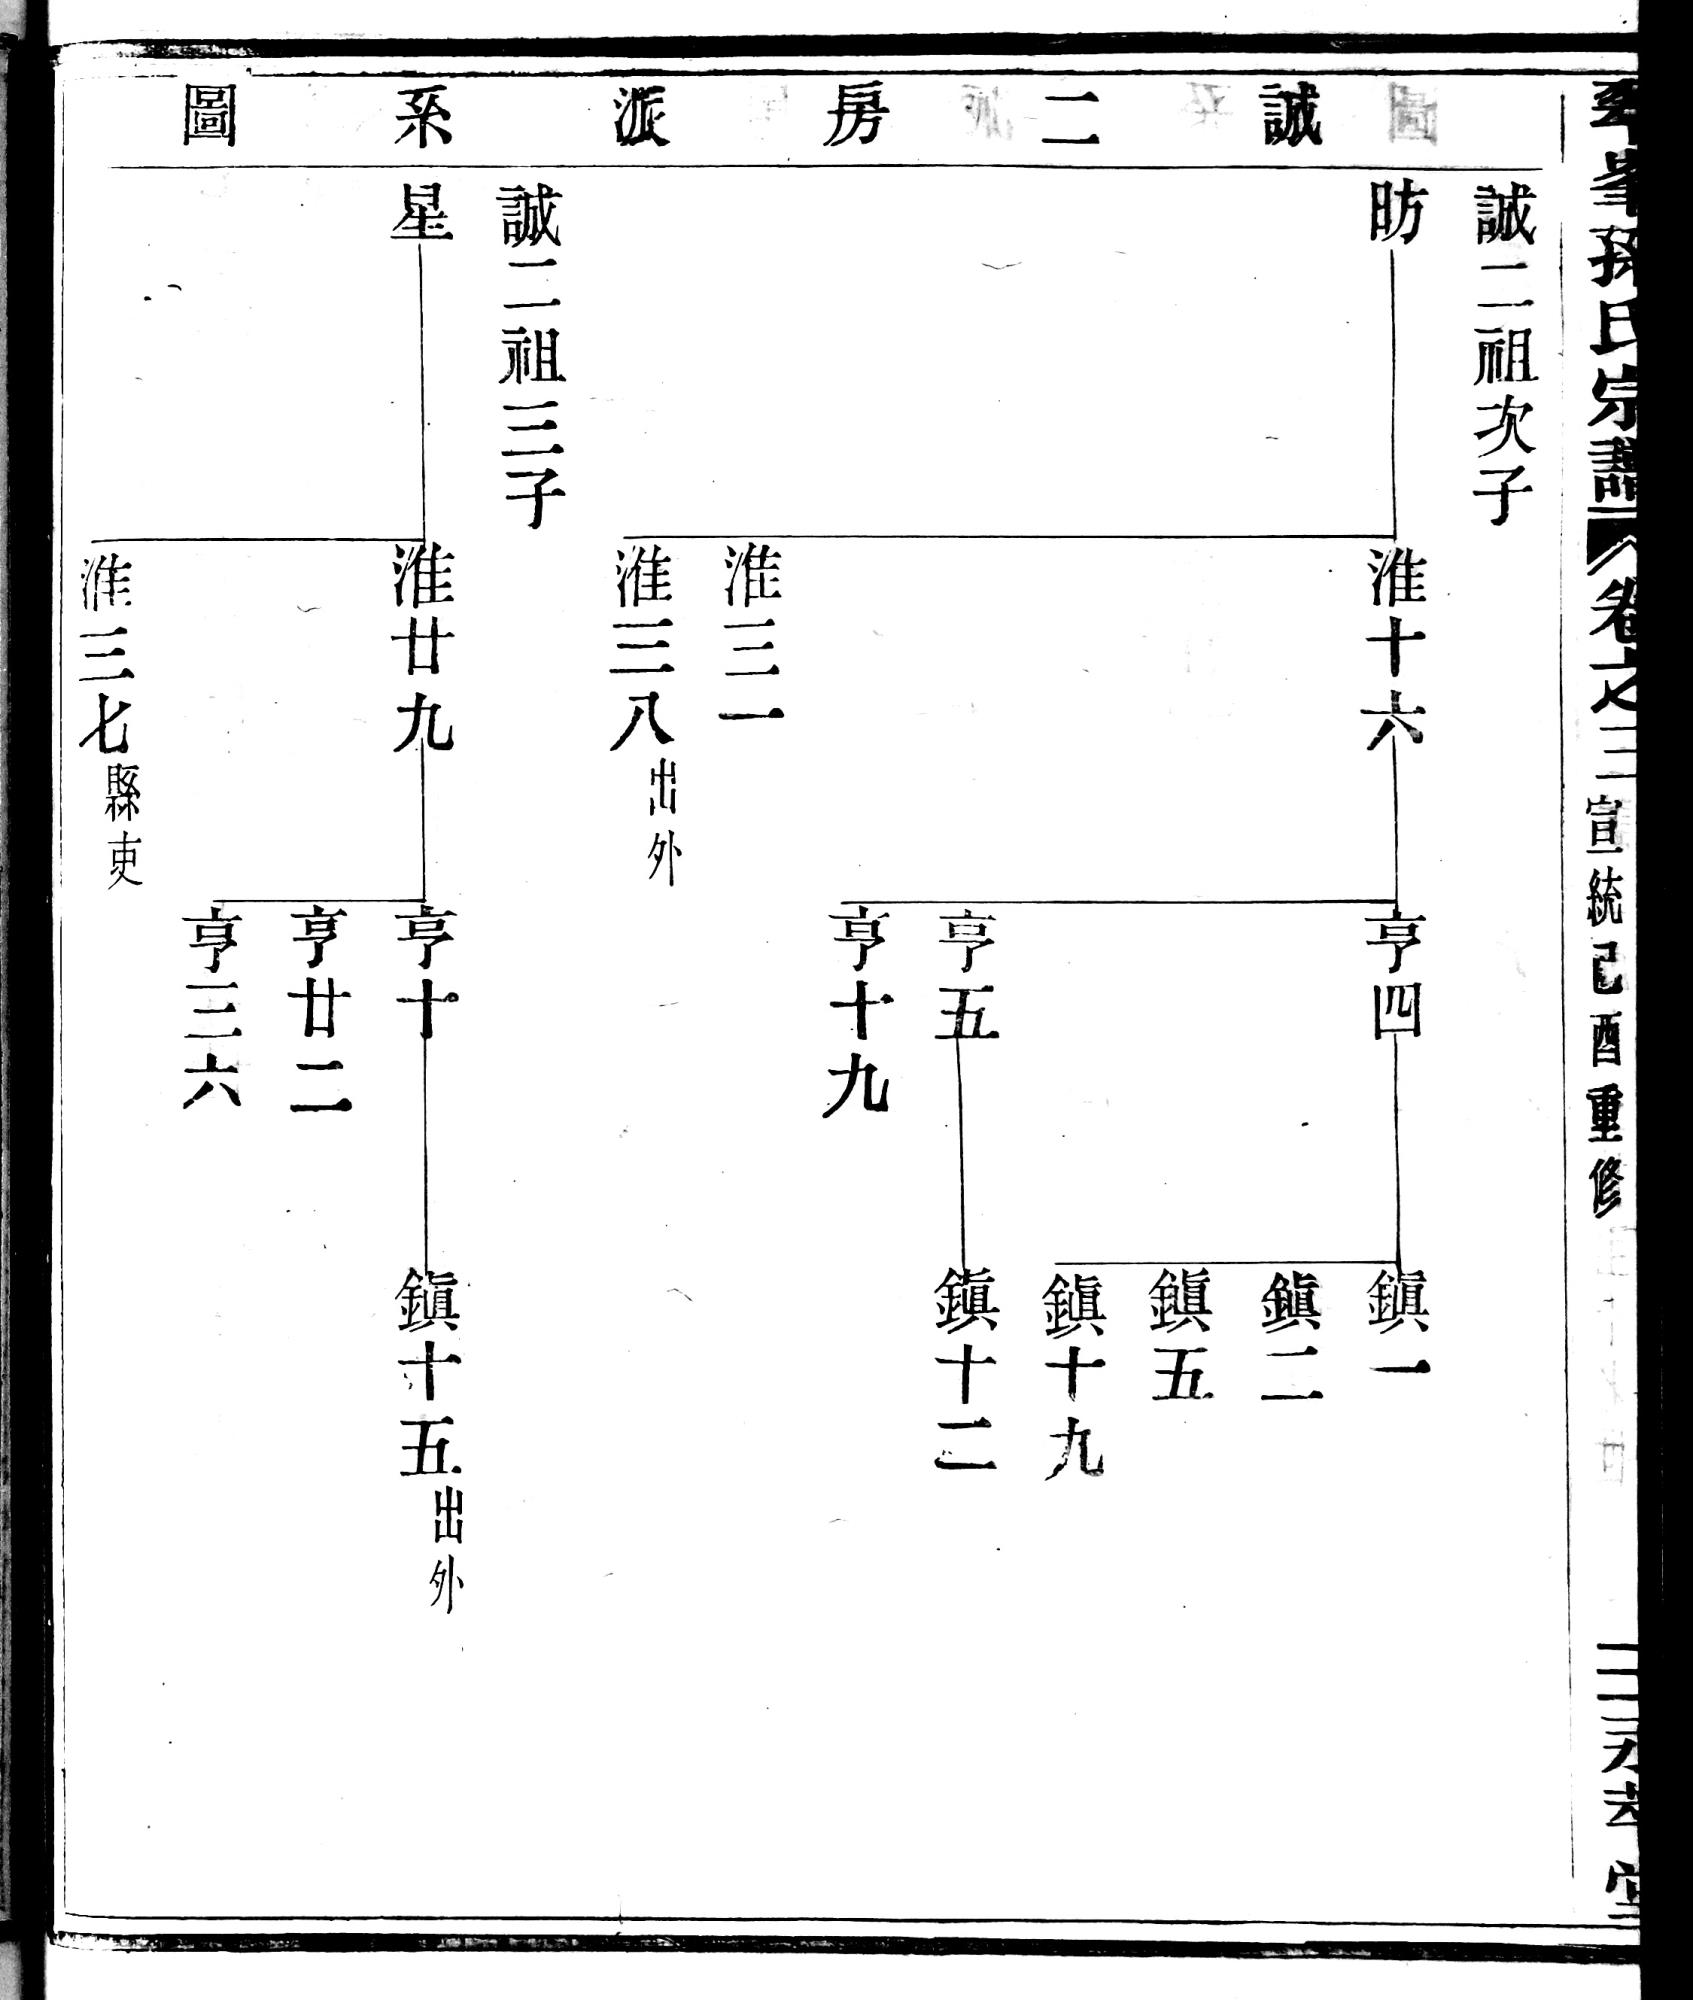 誠二房派系圖
誠二祖次子
昉
淮十六
淮三一
淮三八出外
亨四
亨五
亨十九
鎭一
鎭二
鎭五
鎭十九
鎭十二
誠二祖三子
星
淮廿九
淮三七縣吏
亨十
亨廿二
亨三六
鎭十五出外
孫氏宗譜
卷之三
宣統己酉重修